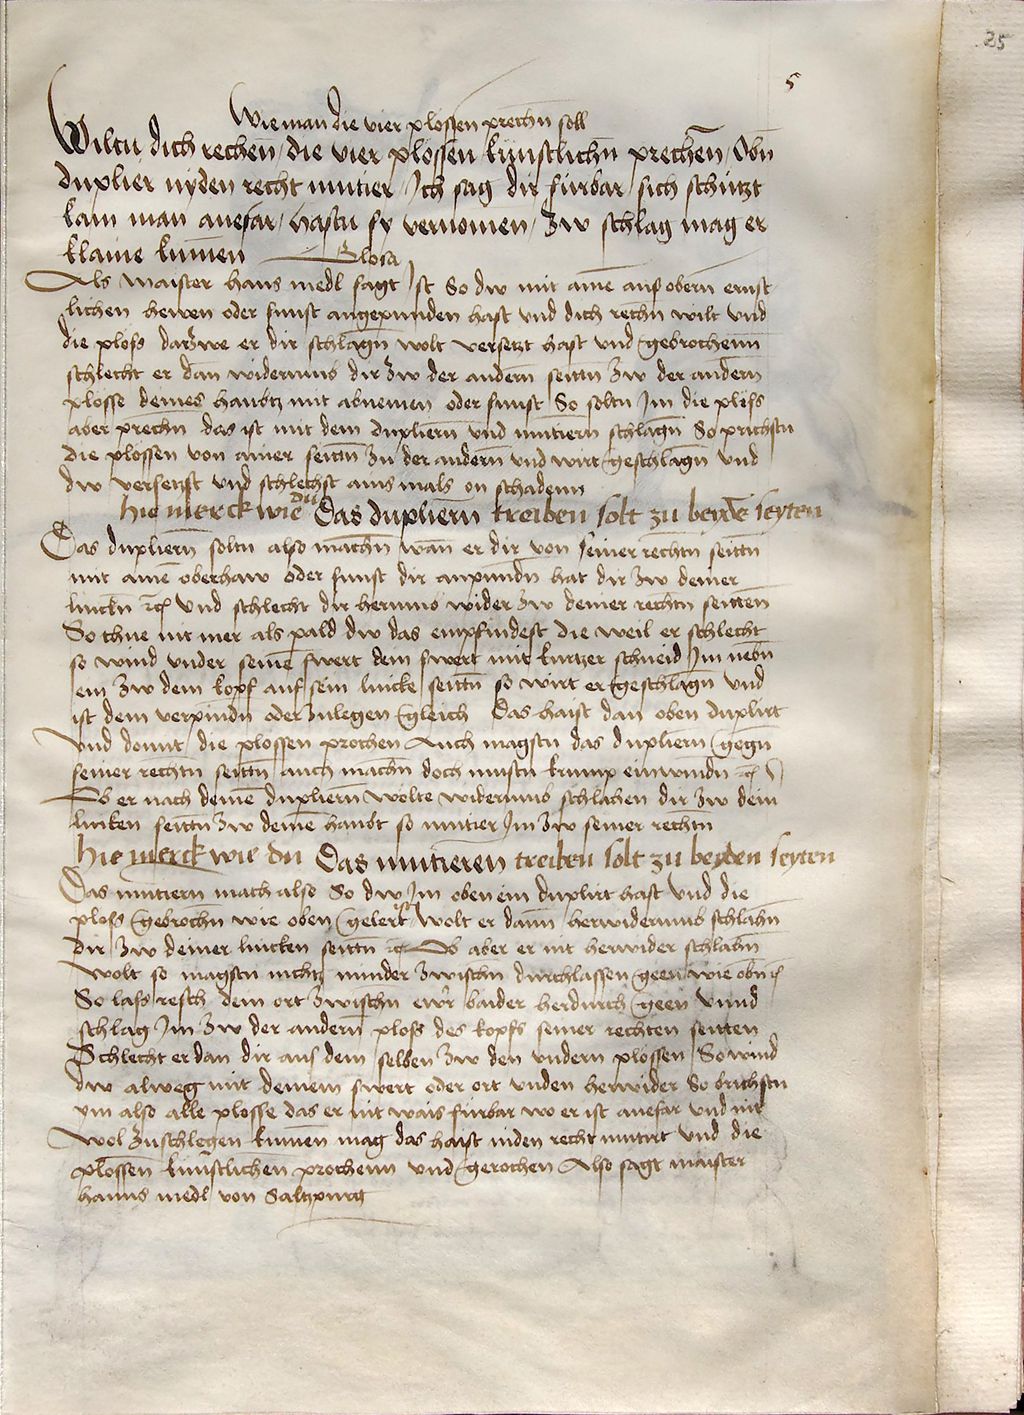 25
5
Wie man die vier plossen prechn̄ soll
Wiltu dich rechen̄ / die vier plossen kunstlichn̄ prechen̄ / Obn̄
duplier nyden recht mutier / Ich sag dir furbar sich schutzt
kain man anefar / hastu sy vernomen / zw schlag mag er
klaine kumen̄ Glosa
Als maister hans medl sagt Ist So dw mit aine auß obern̄ ernst
lichen hewen oder sunst angepunden hast vnd dich rechn̄ wilt vnd
die ploss darzwe er dir schlagn̄ wolt versetzt hast vnd gebrochenn
schlecht er dan widerumb dir zw der andern̄ seittn̄ zw der andern̄
plosse deines haubtz mit abnemen oder sunst So soltu Im die ploss
aber prechn̄ das ist mit dem dupliern̄ vnd mutiern̄ schlagn̄ So prichstu
die plossen von ainer seittn̄ zu der andern̄ vnd wirt geschlagn̄ vnd
dw versetzst vnd schlechst ains mals on schadenn
hie merck wie du Das dupliern̄ treiben solt zu beyde seyten
Das dupliern̄ soltu also machn̄ wan̄ er dir von seiner rechtn̄ seittn̄
mit aine oberhaw oder sunst dir anpundn̄ hat dir zw deiner
linckn̄ vnd schlecht dir herumb wider zw deiner rechtn̄ seitten̄
So thue nit mer als pald dw das empfindest die weil er schlecht
so wind vnder seine swert dem swert mit kurtzer schneid Im nebn̄
ein zw dem kopf auf sein lincke seittn̄ so wirt er geschlagn̄ vnd
ist dem verpindn̄ oder zulegen gleich Das haist dan oben duplirt
vnd domit die plossen prochen Auch magstu das dupliern̄ gegn̄
seiner rechtn̄ seittn̄ auch machn̄ doch mustu krump einwindn̄
Ob er nach deine dupliern̄ wolte widerumb schlahen dir zw dein
lincken seittn̄ zw deine haubt so mutier Im zw seiner rechtn̄
hie merck wie du Das mutieren treiben solt zu beyden seyten
Das mutiern̄ mach also So dw Im oben ein duplirt hast vnd die
ploss gebrochn̄ wie oben gelert ist wolt er dann herwiderumb schlahn̄
dir zw deiner lincken seittn̄ Ob aber er nit herwider schlahn̄
wolt so magstu nichtz minder zwischn̄ durchlassen geen wie obn̄
So lass resch dem ort zwischn̄ ewr baider herdurch geen vnnd
schlag Im zw der andern̄ ploss des kopfs seiner rechten seitten
Schlecht er dan dir auf dem selben zw den vndern plossen So wind
dw alweg mit deinem swert oder ort vnden herwider So brichstu
ym also alle plosse das er nit wais furbar wo er ist anefar vnd nit
wol zuschlegen kumen̄ mag das haist niden recht mutirt vnd die
plossen̄ kunstlichen prochenn vnd gerochen Also sagt maister
hanns medl von Saltzpurg